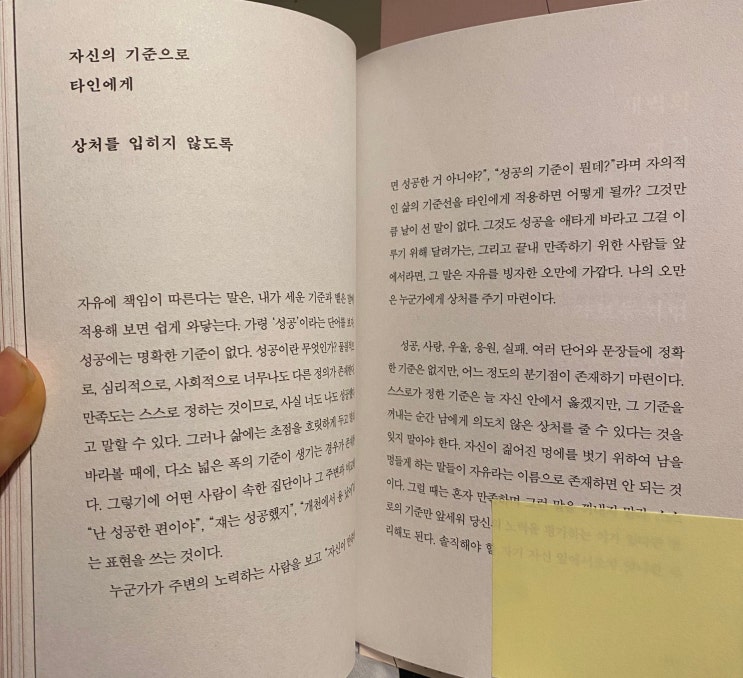 자신의 기준으로
타인에게
상처를 입히지 않도록
자유에 책임이 따른다는 말은, 내가 세운 기준과
적용해 보면 쉽게 와닿는다. 가령 '성공'이라는 단어를
성공에는 명확한 기준이 없다. 성공이란 무엇인가?
로, 심리적으로, 사회적으로 너무나도 다른 정의가
만족도는 스스로 정하는 것이므로, 사실 너도 나도
고 말할 수 있다. 그러나 삶에는 초점을 흐릿하게 두고
바라볼 때에, 다소 넓은 폭의 기준이 생기는 경우가
다. 그렇기에 어떤 사람이 속한 집단이나 그 주변과
"난 성공한 편이야", "쟤는 성공했지", "개천에서 용
는 표현을 쓰는 것이다.
누군가가 주변의 노력하는 사람을 보고 "자신이
면 성공한 거 아니야?", "성공의 기준이 뭔데?"라며 자의적
인 삶의 기준선을 타인에게 적용하면 어떻게 될까? 그것만
큼 날이 선 말이 없다. 그것도 성공을 애타게 바라고 그걸 이
루기 위해 달려가는, 그리고 끝내 만족하기 위한 사람들 앞
에서라면, 그 말은 자유를 빙자한 오만에 가깝다. 나의 오만
은 누군가에게 상처를 주기 마련이다.
성공, 사랑, 우울, 응원, 실패. 여러 단어와 문장들에 정확
한 기준은 없지만, 어느 정도의 분기점이 존재하기 마련이다.
스스로가 정한 기준은 늘 자신 안에서 옳겠지만, 그 기준을
꺼내는 순간 남에게 의도치 않은 상처를 줄 수 있다는 것을
잊지 말아야 한다. 자신이 짊어진 멍에를 벗기 위하여 남을
멍들게 하는 말들이 자유라는 이름으로 존재하면 안 되는 것
이다. 그럴 때는 혼자 만족하면 그런 말을
로의 기준만 앞세워 당신의
리해도 된다. 솔직해야 할